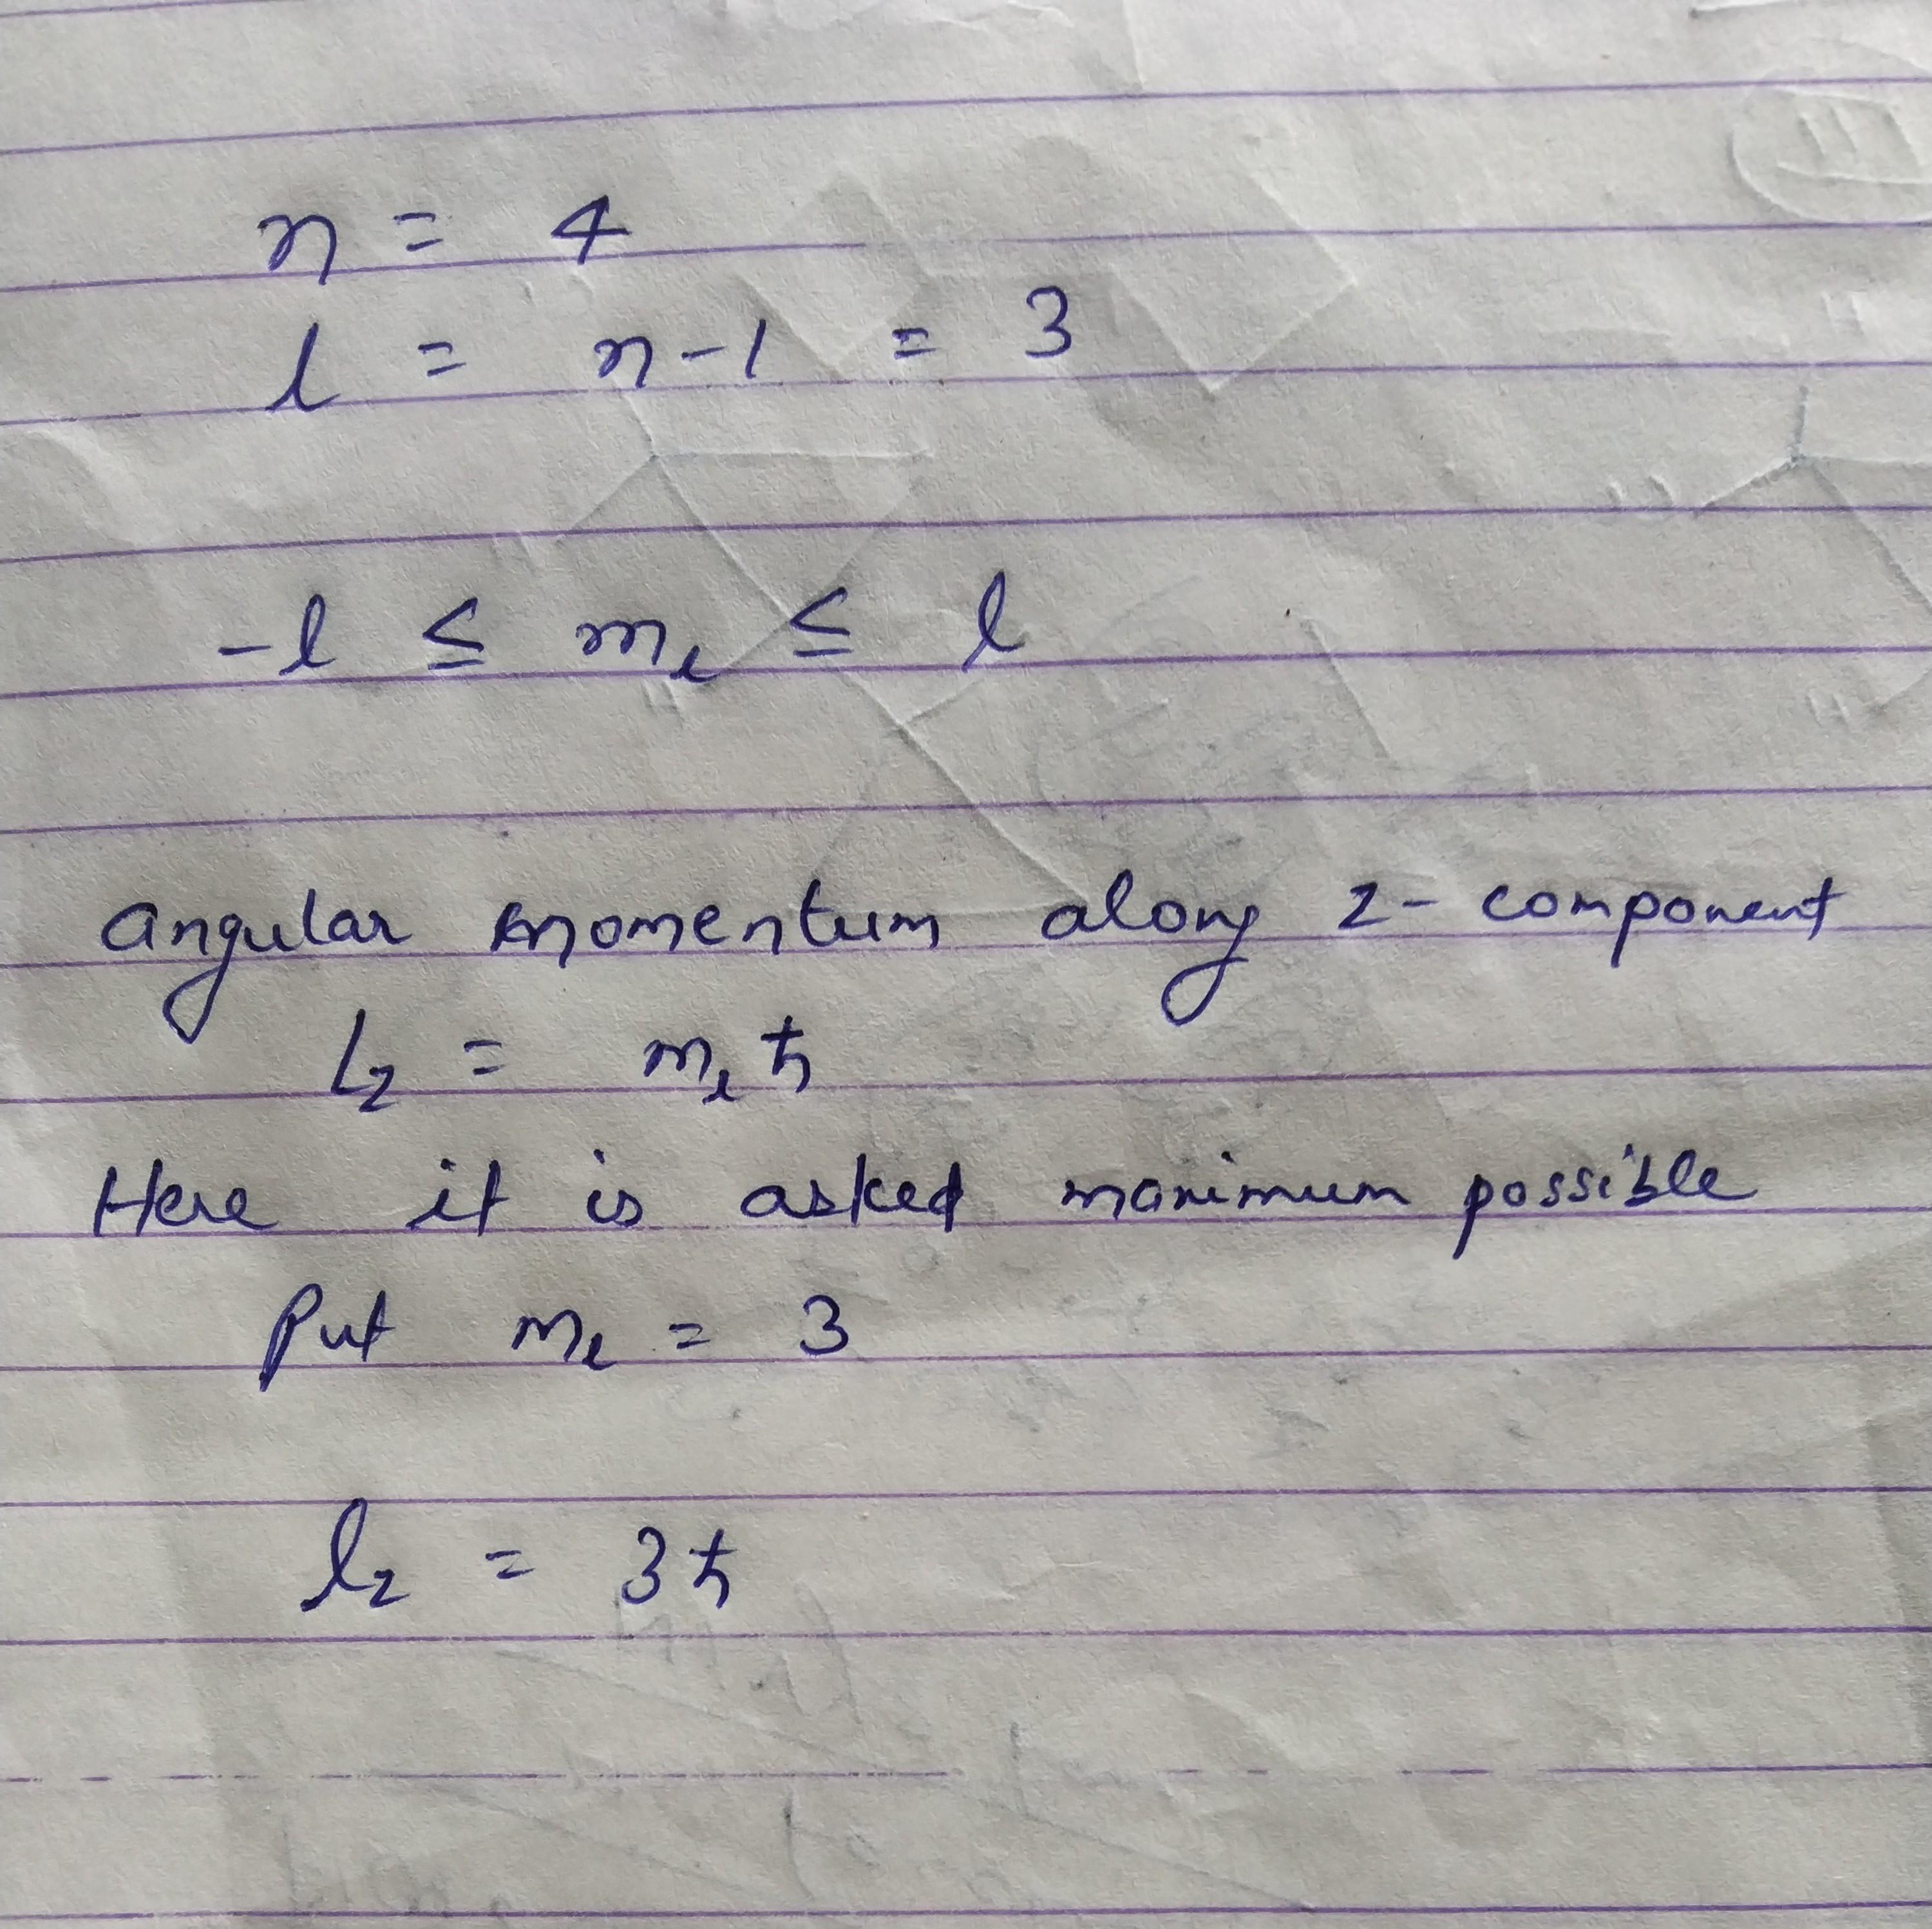 n = 4
l = n-1 = 3
-l ≤ mₗ ≤ l
angular momentum along z-component
Lz = mₗ ħ
Here it is asked maximum possible
Put mₗ = 3
lz = 3ħ